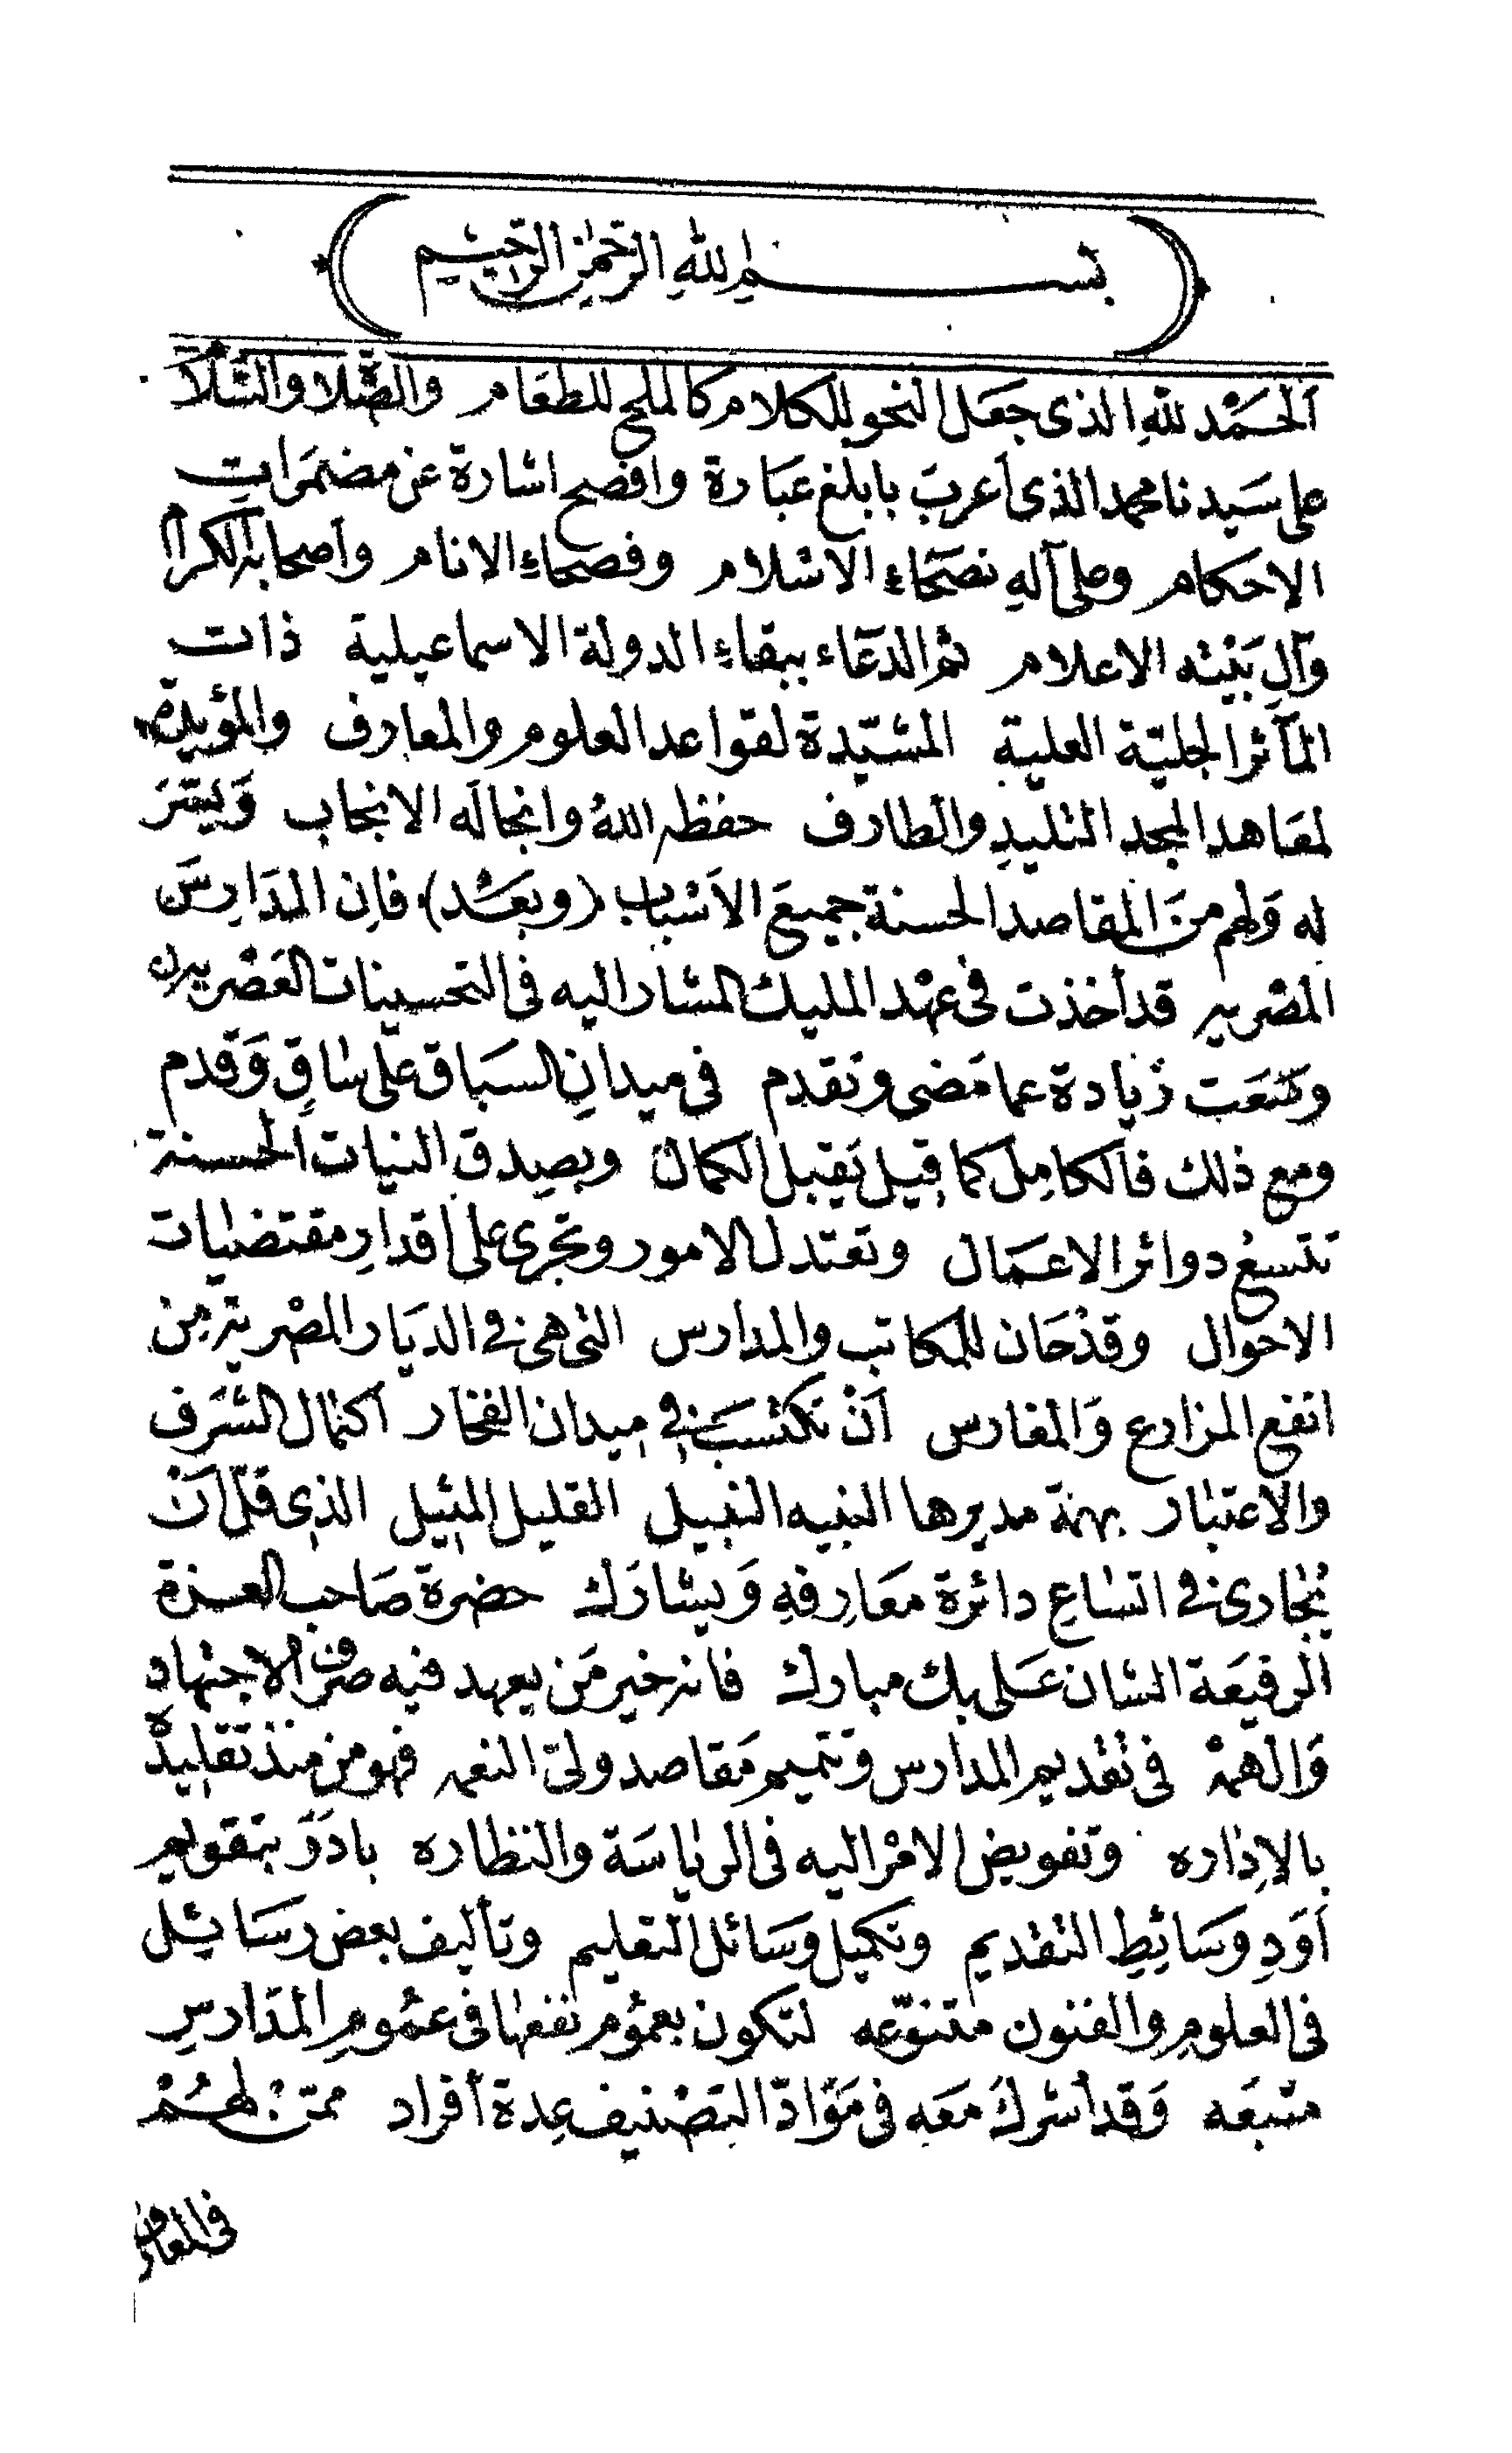 بسم الله الرحمن الرحيم
اَلحَمْد للهِ الذى جعَل النحو للكلام كالملح للطعَام والصّلاة والسّلام
على سَيدنا محمد الذى أعربَ بابلغ عبَارة وافصح اشارة عن مضمَراتِ
الاحكام وعلى آلهِ نصحَاءِ الاسْلام وفصحاءِ الانام وأصحابه الكرام
وآلِ بَيْته الاعلام ثم الدعَاء ببقاءِ الدولة الاسماعيلية ذات
المآثر الجليّة العلية المشيّدة لقواعد العلوم والمعارف والمؤيدة
لمعَاهد المجد التليدِ والطارف حفظه اللهُ وانجاله الانجاب وَيسّرَ
له وَلهم منَ المقاصد الحسنة جميعَ الاَسْباب (وبعَد) فاِن المدَارِسَ
المصْريه قد أخذت فى عهْد المليك المشار اليه فى التحسينات العَصْريه
وسَعَت زيادة عما مَضى وتقدم فى ميدانِ السبَاق على سَاقٍ وَقدم
ومع ذلك فالكامِل كما قيل يَقبل الكمال وبصِدق النيات الحسنة
تتسعُ دوائر الاعمَال وتعتدل الامور وتجرى على اقدارِ مقتضيات
الاحوال وقدْ حَان للمكاتب والمدارس التى هى فى الديَار المصْرية مِن
انفع المزارع وَالمغارس اَنْ تكتسبَ فى ميدان الفخَار اكمال الشرَف
والاعتبار بهمة مديرها النبيه النبيل القليل المثيل الذى قلّ اَنْ
يُجارى فى اتساعِ دائرة معَارِفهِ وَيشارَك حضرة صَاحب العزة
الرفيعَة الشان عَلى بك مبارك فانه خير مَن يعهد فيه صرْف الاجتهادِ
وَالهمهْ فى تقديم المدارس وتتميم مَقاصد ولىّ النعمه فهو من منذ تقليدهْ
بالاِدَاره وتفويض الامْر اليه فى الريَاسَة والنظاره بادَرَ بتقويم
اَوَدِ وَسَائِطِ التقديم وتكميل وَسَائل التعليم وتأليف بعض رسَائِل
فى العلوم والفنون متنوّعه لتكون بعمُوم نفعهَا فى عمُومِ المدَارسِ
متبعَه وَقد أشركَ معَه فى مَوَادّ التصْنيف عِدة أفراد ممّنْ لهُمْ
فى المعارف